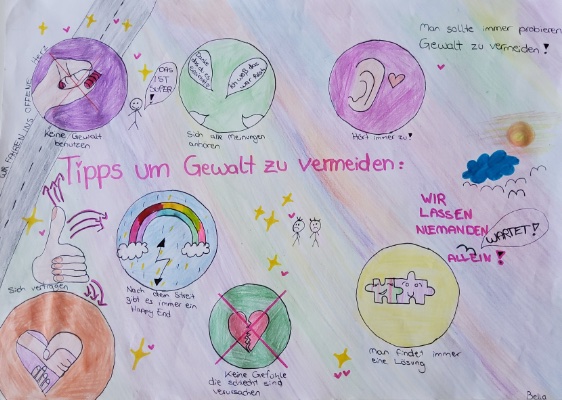 Man sollte immer probieren
Gewalt zu vermeiden!
WIR FAHREN INS OFFENE Herz
DAS
IST
SUPER!
Ich weiß das
war
keine Gewalt
benutzen
Sich alle Meinungen
anhören
Hört immer zu!
Tipps um Gewalt zu vermeiden:
WIR
LASSEN
NIEMANDEN
ALLEIN!
WARTET!
Sich vertragen
Nach dem Streit
gibt es immer ein
Happy End
Keine Gefühle
die schlecht sind
verursachen
Man findet immer
eine Lösung